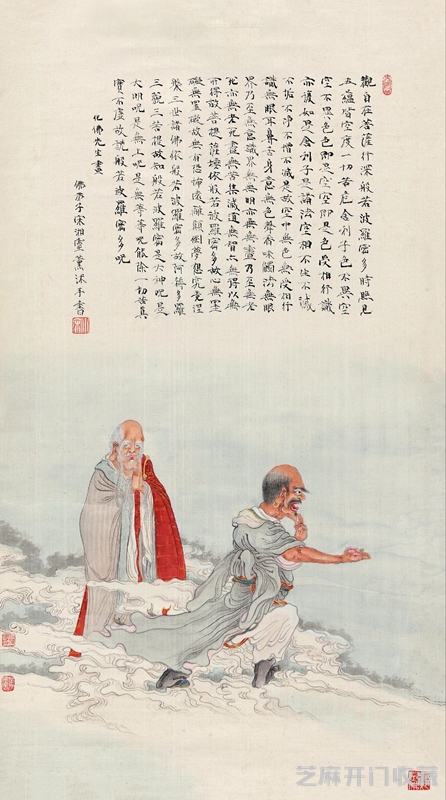 觀自在菩薩行深般若波羅密多時照見
五蘊皆空度一切苦厄舍利子色不異空
空不異色色即是空空即是色受想行識
亦復如是舍利子是諸法空相不生不滅
不垢不淨不增不減是故空中無色無受想行
識無眼耳鼻舌身意無色聲香味觸法無眼
界乃至無意識界無無明亦無無明盡乃至無老
死亦無老死盡無苦集滅道無智亦無得以無
所得故菩提薩埵依般若波羅密多故心無罣
礙無罣礙故無有恐怖遠離顛倒夢想究竟涅
槃三世諸佛依般若波羅密多故阿耨多羅
三藐三菩提故知般若波羅密多是大神呪是
大明呪是無上呪是無等等呪能除一切苦真
實不虛故說般若波羅密多呪
化佛先生畫
佛弟子宋湘靈薰沐手書
芝麻开门收藏